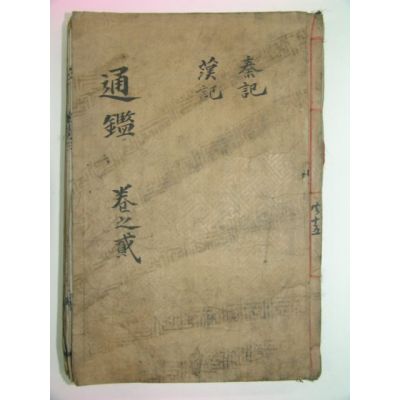 秦記
漢記
通鑑
卷之貳